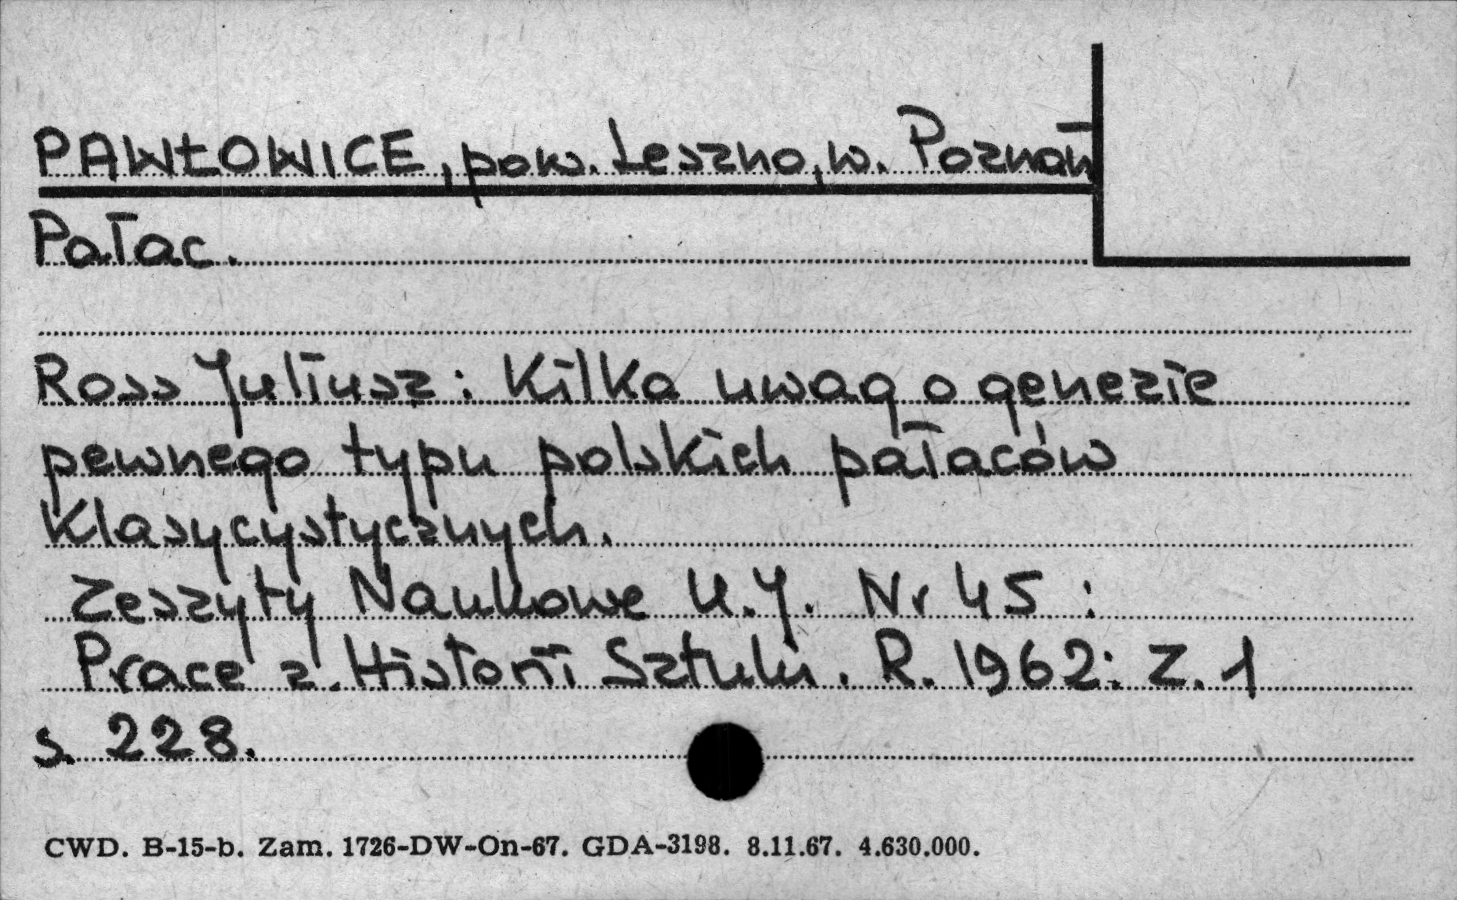 PAWŁOWICE, pow. Leszno, w. Poznań
Pałac.
Ross Juliusz: Kilka uwag o genezie
pewnego typu polskich pałaców
klasycystycznych.
Zeszyty Naukowe U.J. Nr 45 :
Prace z Historii Sztuki. R. 1962: Z. 1
s. 228.
CWD. B-15-b. Zam. 1726-DW-On-67. GDA-3198. 8.11.67. 4.630.000.